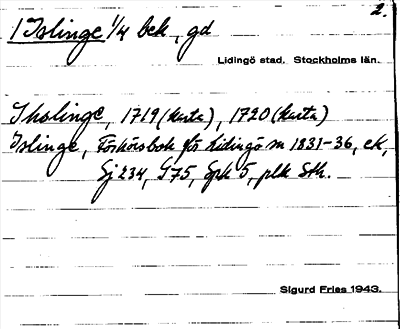 2.
1 Islinge 1/4 bek, gd
Lidingö stad, Stockholms län.
Isolinge, 1719 (karta), 1720 (karta)
Islinge, Förhörsbok för Lidingö sn 1831-36, ek,
Gj 234, G75, Spk 5, plk Sth.
Sigurd Fries 1943.